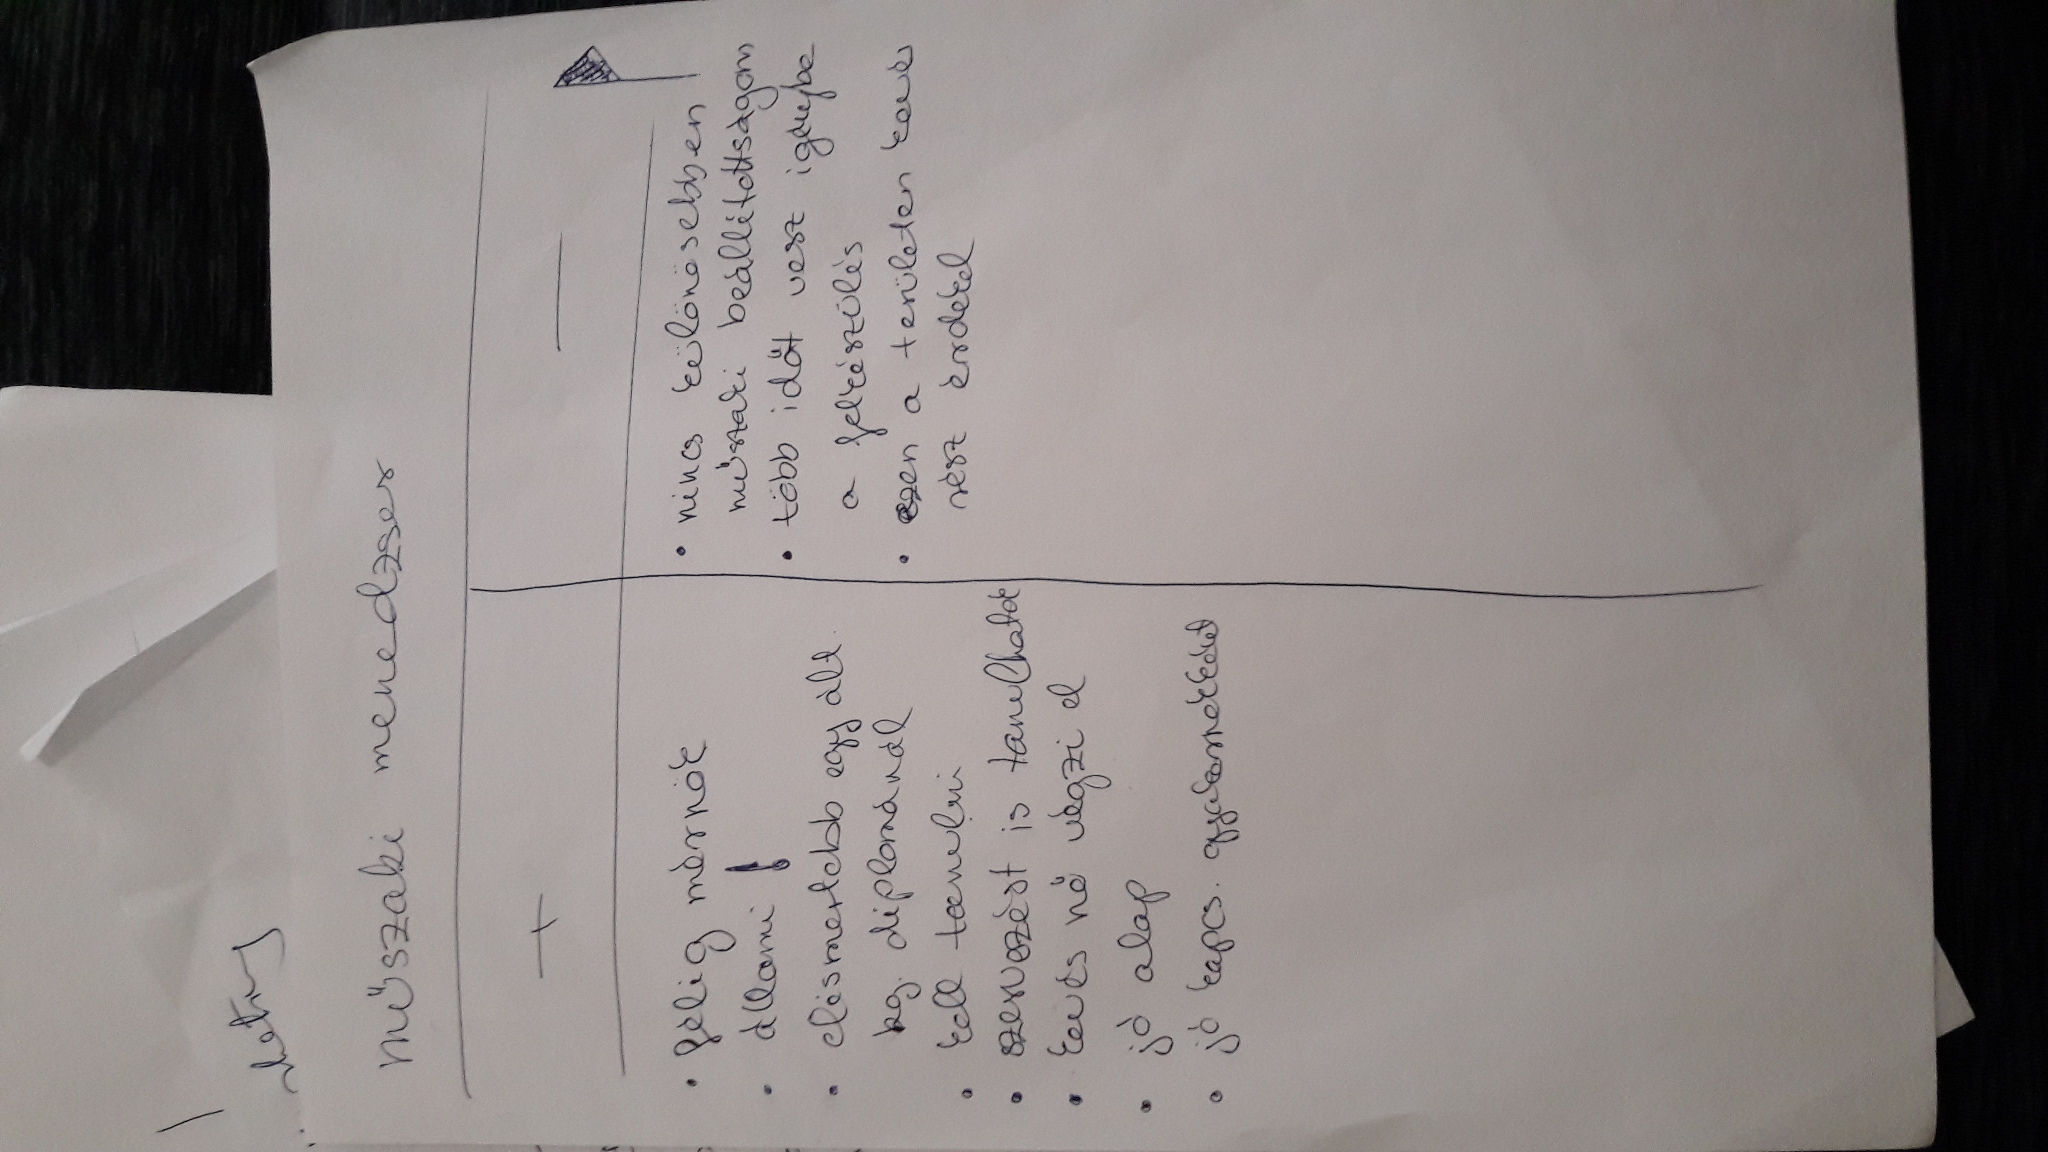 műszaki menedzser
+
—
• félig mérnök
• állami !
• elismertebb egy ált.
kg. diplománál
• kell tanulni
• szervezést is tanulhatok
• kevés nő végzi el
• jó alap
• jó kapcs.
• nincs különösebben
műszaki beállítottságom
• több időt vesz igénybe
a felkészülés
• ezen a területen kevés
rész érdekel